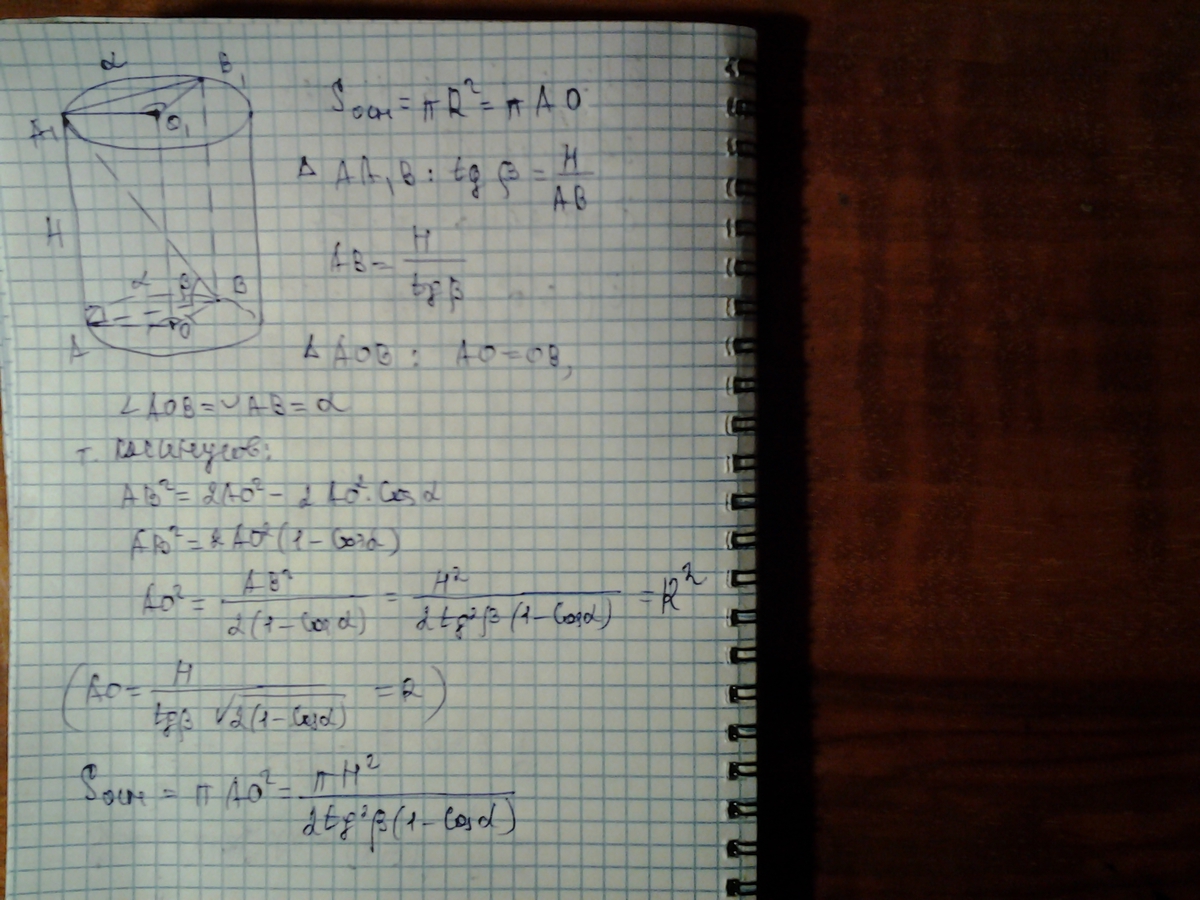 α
B₁
A₁
O₁
H
α
β
B
O
A
Sосн = πR² = πAO
Δ AA₁B : tgβ = H/AB
AB = H/tgβ
Δ AOB : AO = OB,
∠AOB = ◡AB = α
т. косинусов:
AB² = 2AO² - 2AO²·Cosα
AB² = 2AO²(1 - Cosα)
AO² = AB²/2(1 - Cosα) = H²/2tg²β(1 - Cosα) = R²
(AO = H/tgβ √2(1 - Cosα) = R)
Sосн = πAO² = πH²/2tg²β(1 - Cosα)